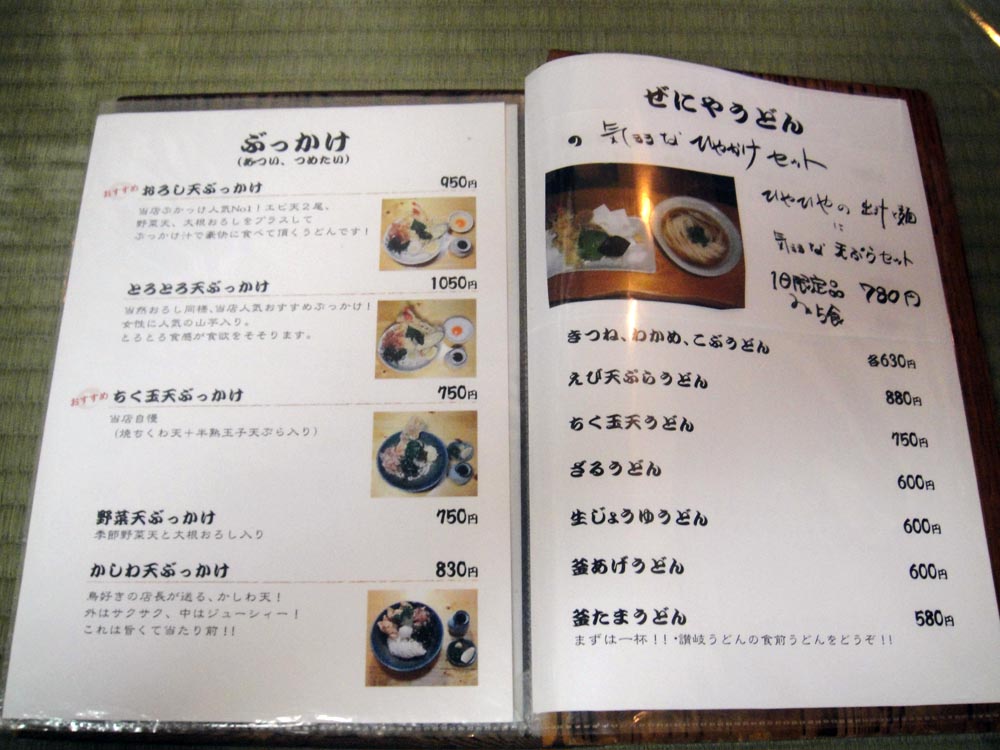 ぶっかけ
(あつい、つめたい)
おすすめ おろし天ぶっかけ 950円
当店ぶかっけ人気No1！エビ天２尾、
野菜天、大根おろしをプラスして
ぶっかけ汁で豪快に食べて頂くうどんです！
とろとろ天ぶっかけ 1050円
当然おろし同様、当店人気おすすめぶっかけ！
女性に人気の山芋入り。
とるとる食感が食欲をそそります。
おすすめ ちく玉天ぶっかけ 750円
当店自慢
（焼ちくわ天＋半熟玉子天ぷら入り）
野菜天ぶっかけ 750円
季節野菜天と大根おろし入り
かしわ天ぶっかけ 830円
鳥好きの店長が送る、かしわ天！
外はサクサク、中はジューシィー！
これは旨くて当たり前！！
ぜにやうどん
の 気まるな ひやかけ セット
ひやひやの 出汁と麺
に
気まるな 天ぷらセット
1日限定品 780円
み 5食
きつね、わかめ、こぶうどん 各630円
えび天ぷらうどん 880円
ちく玉天うどん 750円
ざるうどん 600円
生じょうゆうどん 600円
釜あげうどん 600円
釜たまうどん 580円
まずは一杯！！・讃岐うどんの食前うどんをどうぞ！！